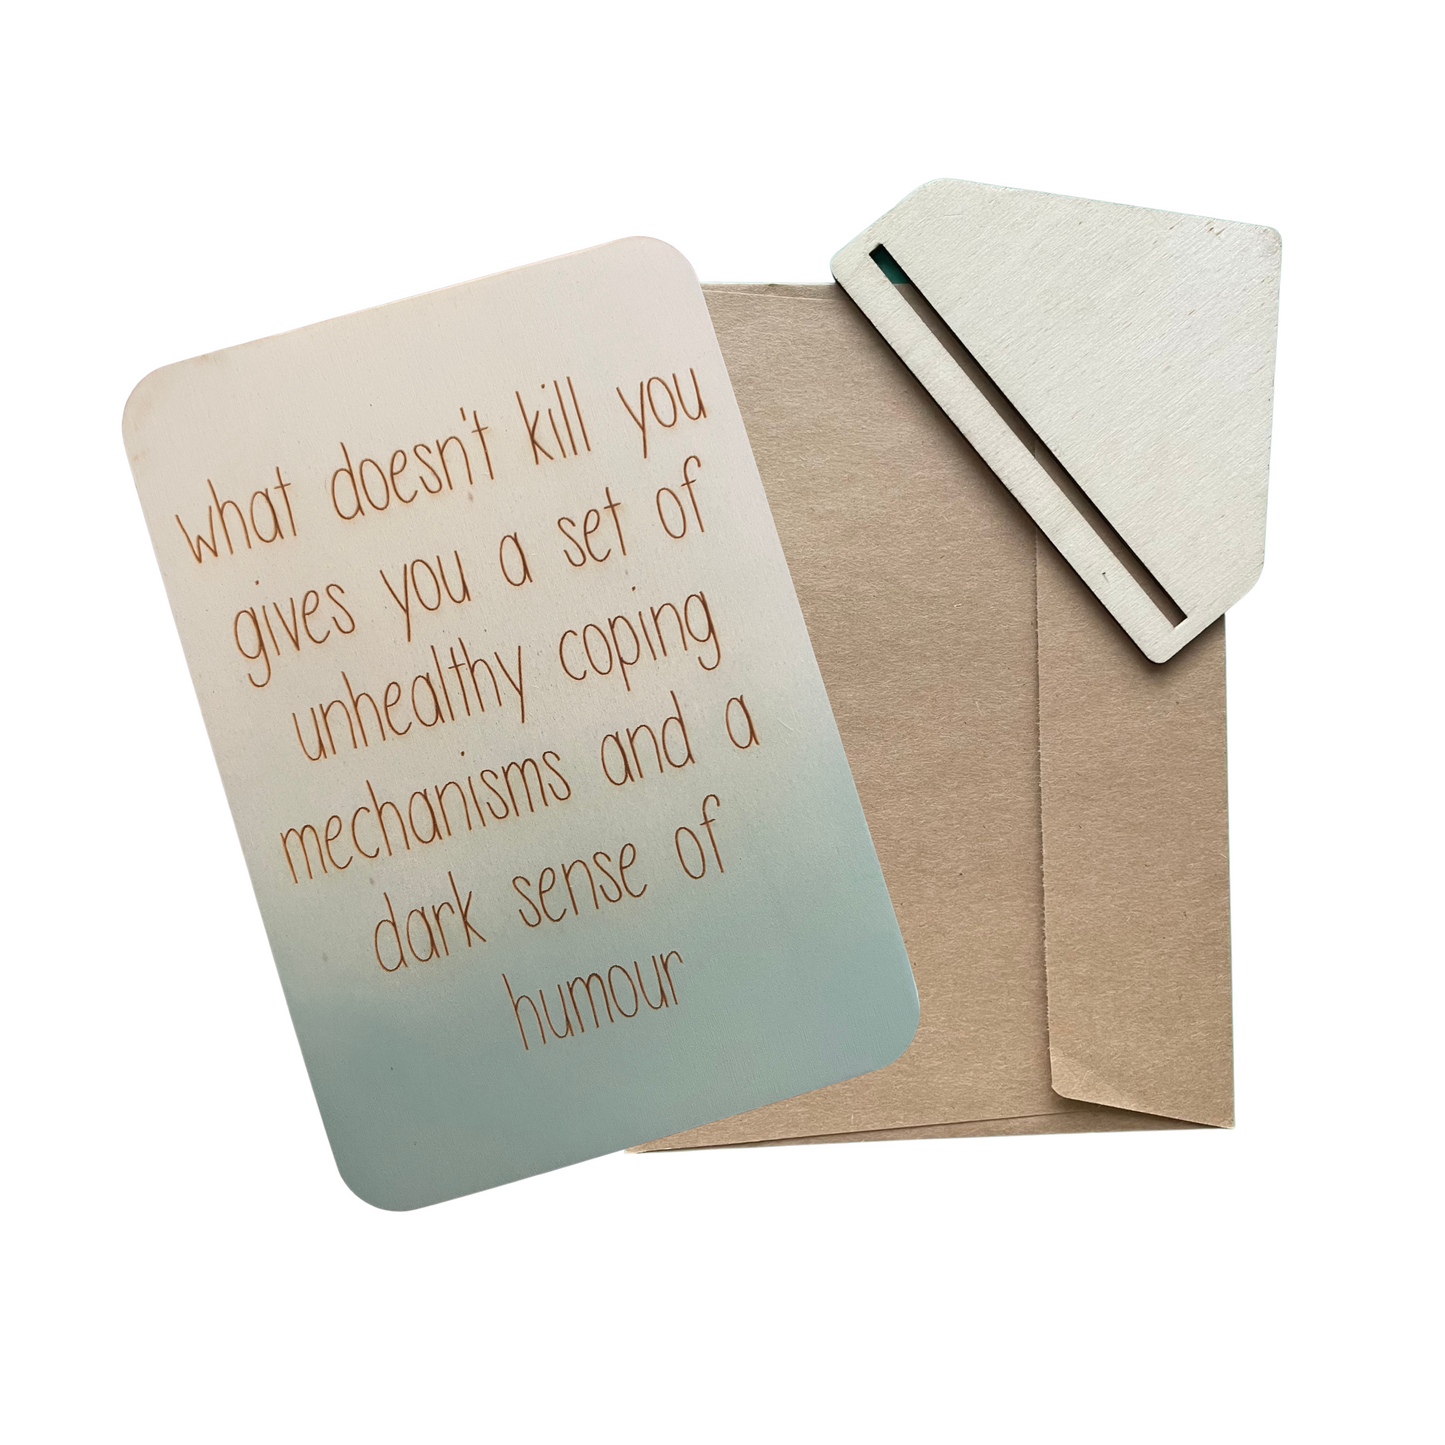 what doesn't kill you
gives you a set of
unhealthy coping
mechanisms and a
dark sense of
humour